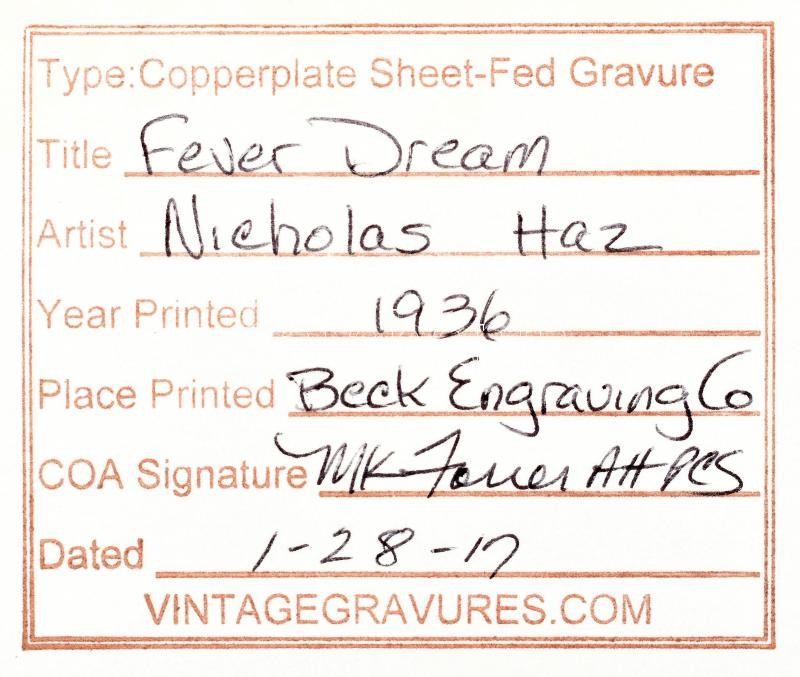 Type:Copperplate Sheet-Fed Gravure
Title Fever Dream
Artist Nicholas Haz
Year Printed 1936
Place Printed Beck Engraving Co
COA Signature MK AHPCS
Dated 1-28-17
VINTAGEGRAVURES.COM